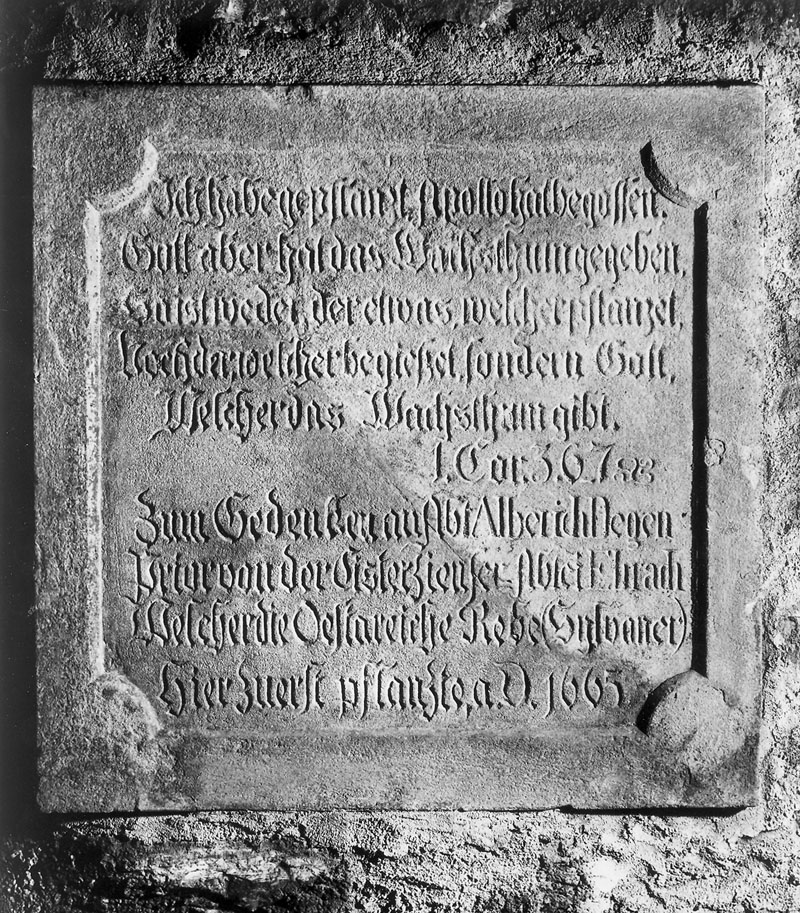 Ich habe gepflanzt, Apollo hat begossen.
Gott aber hat das Wachsthum gegeben,
So ist weder, der etwas, welcher pflanzet,
Noch der, welcher begießet, sondern Gott,
Welcher das Wachsthum gibt.
1. Cor. 3. 6. 7
Zum Gedenken an Abt Alberich Degen
Prior von der Cisterzienser Abtei Ebrach
Welcher die Oestareiche Rebe (Sylvaner)
Hier zuerst pflanzte, a. D. 1665